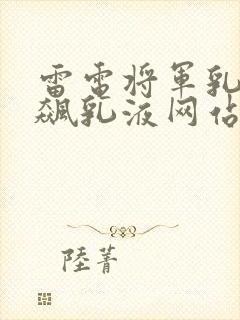 雷电将军乳
飙乳液网站
陸菁